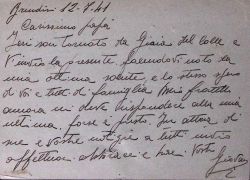 Brindisi 12-7-41
Carissimo papà
Ieri son tornato da Gioia del Colle e
v'invio la presente facendovi noto la
mia ottima salute e lo stesso spero
di voi e tutti di famiglia. Mio fratello
ancora mi deve rispondere alla mia
ultima, forse è presto. In attesa di
me e vostre notizie a tutti invio
affettuosi abbracci e baci. Vostro